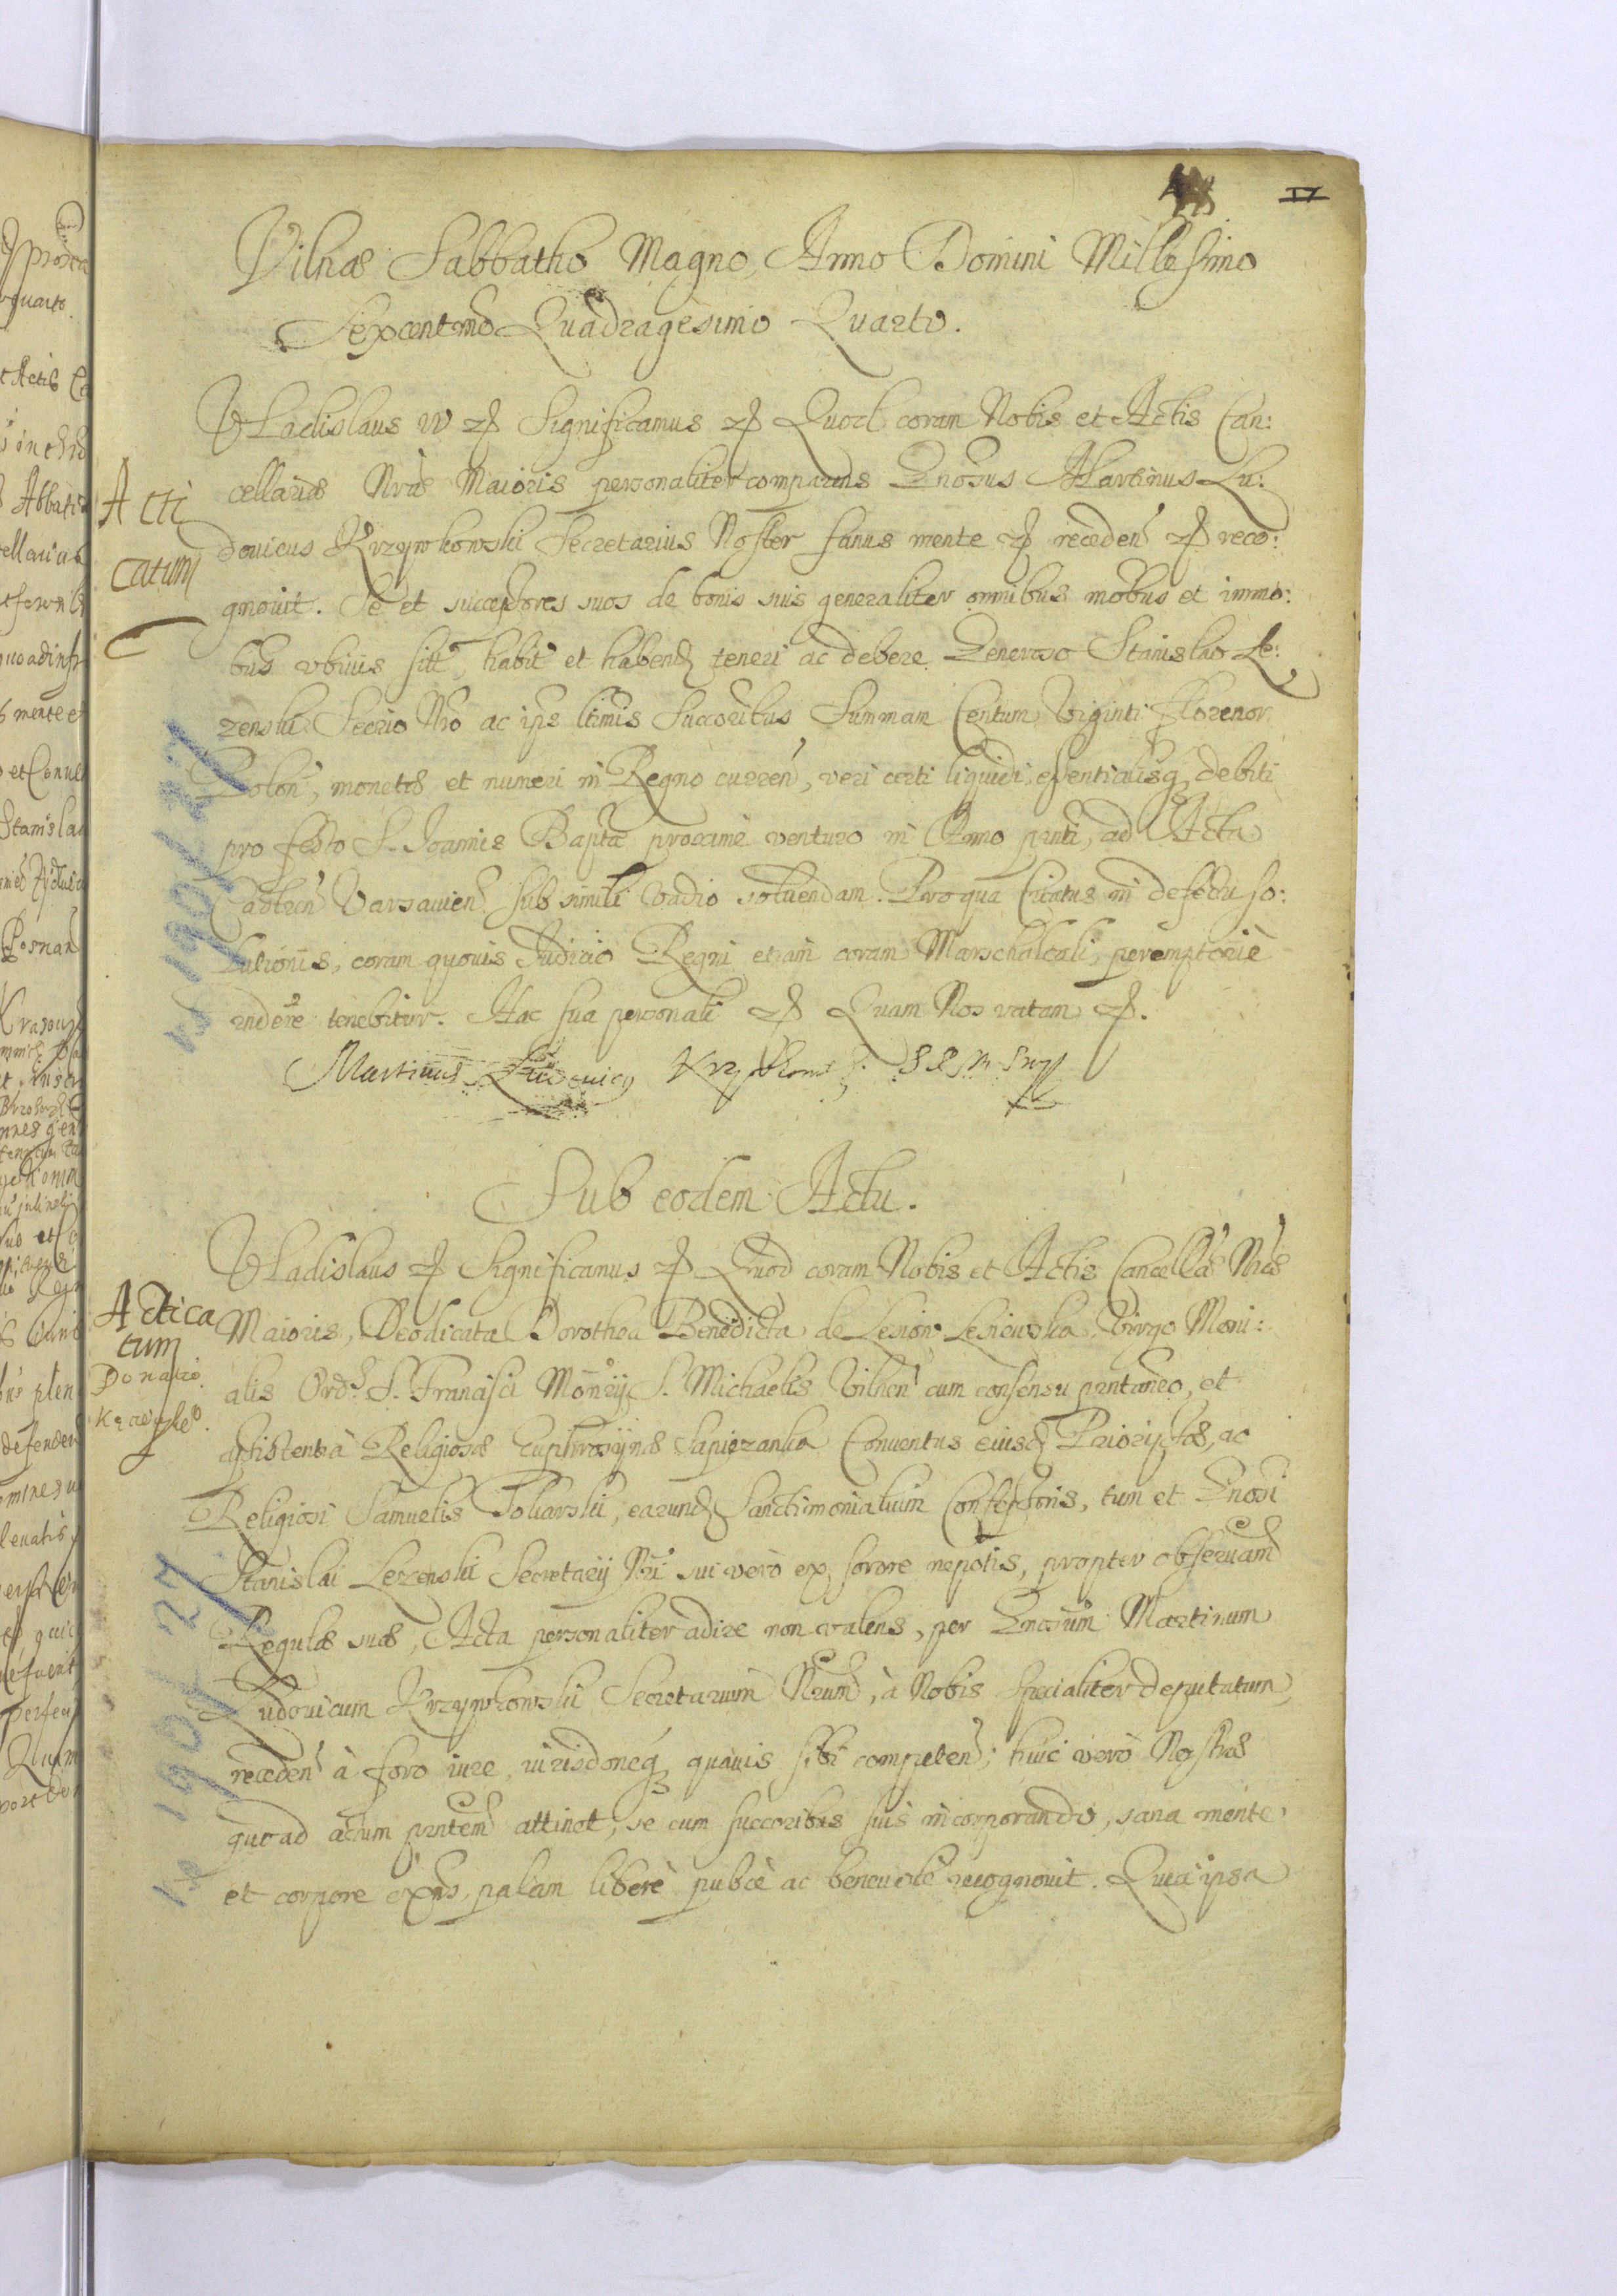 17
Vilnæ Sabbatho Magno, Anno Domini Millesimo
Sexcentmo Quadragesimo Quarto.
Vladislaus IV etc Significamus etc Quod coram Nobis et Actis Can:
cellariæ Nræ Maioris personaliter comparens Gnosus Martinus Lu:
douicus Krzywkowski Secretarius Noster sanus mente etc receden etc reco:
gnouit. Se et successores suos de bonis suis generaliter omnibus mobus et immo:
bus vbiuis sitt, habit et habend teneri ac debere Generoso Stanislao Le:
zenski Secrio Nro ac ips ltimis Succoribus Summam Centum Viginti Florenor
Polon, monetæ et numeri in Regno curren, veri certi liquidi, essentialisq debiti
pro festo S. Joannis Baptæ proxime venturo in Anno pnti, ad Acta
Castren Varsauien sub simili vadio soluendam. Pro qua Citatus in defectu so:
lutionis, coram quouis Judicio Regni etiam coram Marschalcali, peremptorie
rndere tenebitur. Hac sua personali etc Quam Nos ratam etc.
Martinus Ludouicg Krzywkows
Acti
catum
Sub eodem Actu.
Vladislaus etc Significamus etc Quod coram Nobis et Actis Cancellæ Nræ
Maioris, Deodicata Dorothea Benedicta de Lesiow Lesiewska Virgo Moni:
alis Ord. S. Francisci Monrij S. Michaelis Vilnen cum consensu pntaneo, et
assistentia Religiosæ Euphrosijnæ Sapiezanka Conuentus eiusd Priorissæ, ac
Religiosi Samuelis Toliarski, earund Sanctimonialium Confessoris, tum et Gnosi
Stanislai Lezenski Secretarij Nri sui vero ex sorore nepotis, propter obseruand
Regulæ suæ, Acta personaliter adire non valens, per Gnosum Martinum
Ludouicum Krzywkowski Secretarium Nrum, à Nobis specialiter deputatum,
receden à foro iure, iurisdoneq quauis sibi competen; huic verò Nostræ
quoad actum pntem attinet, se cum succoribus suis incorporando, sana mente
et corpore exns, palam liberè pubcè ac beneuole recognouit. Quia ipsa
Actica
tum
Donatio